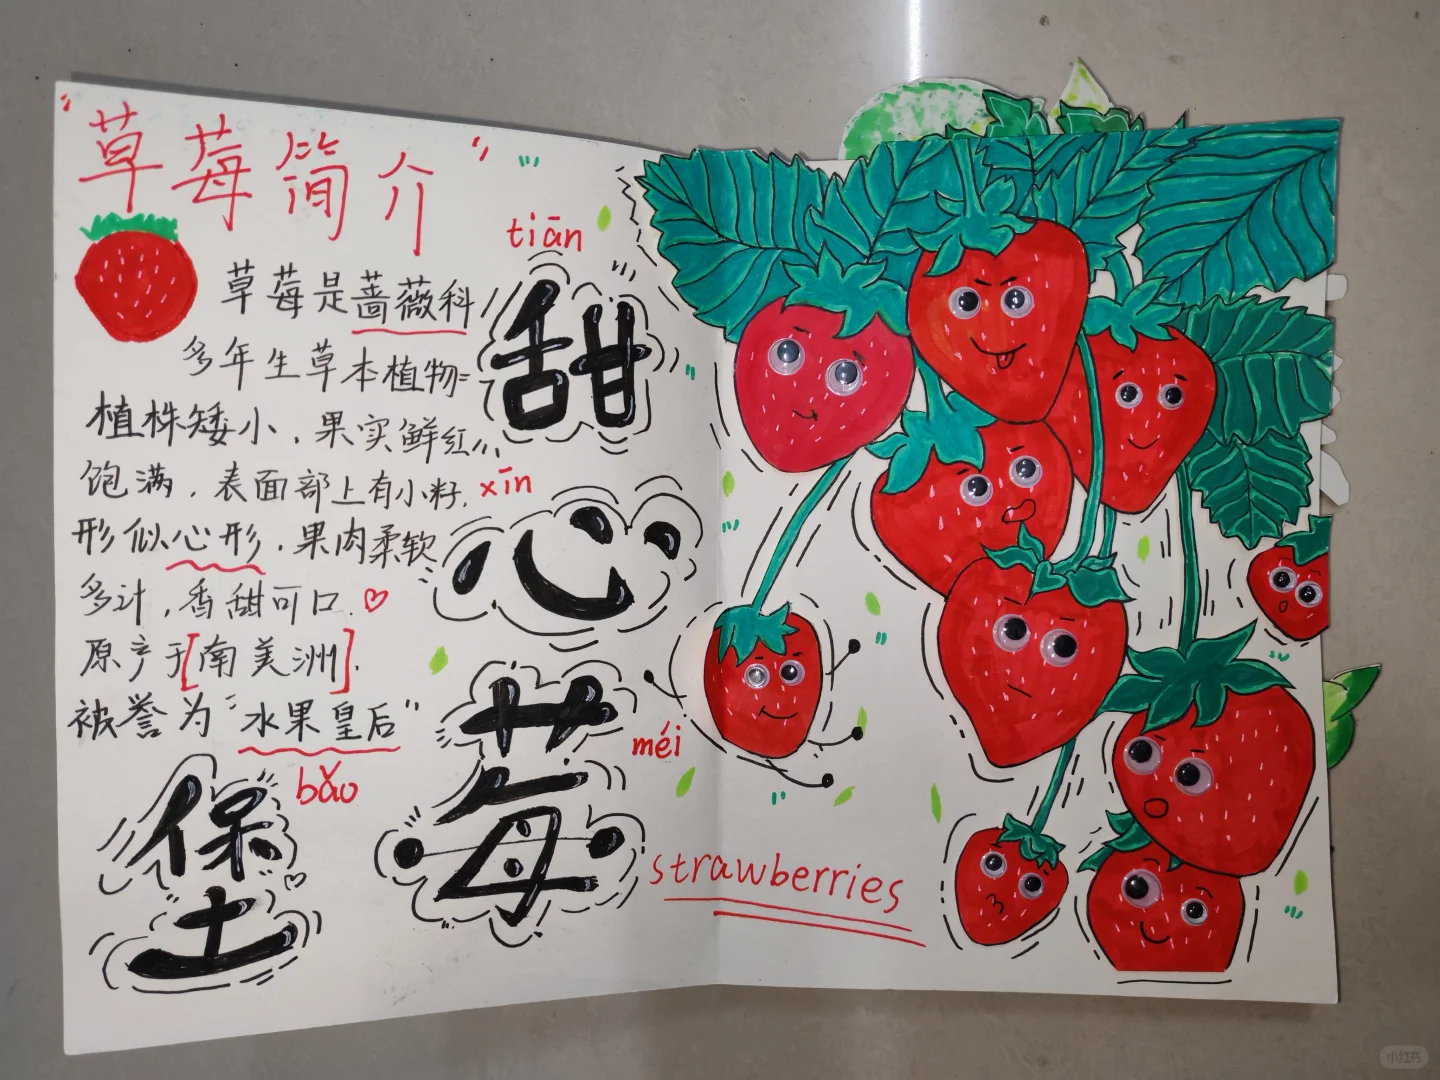 "草莓简介"
草莓是蔷薇科
多年生草本植物=
植株矮小，果实鲜红
饱满，表面部上有小籽，
形似心形，果肉柔软
多汁，香甜可口.
原产于[南美洲].
被誉为"水果皇后"
tiān
甜
xīn
心
méi
莓
bǎo
堡
strawberries
小红书